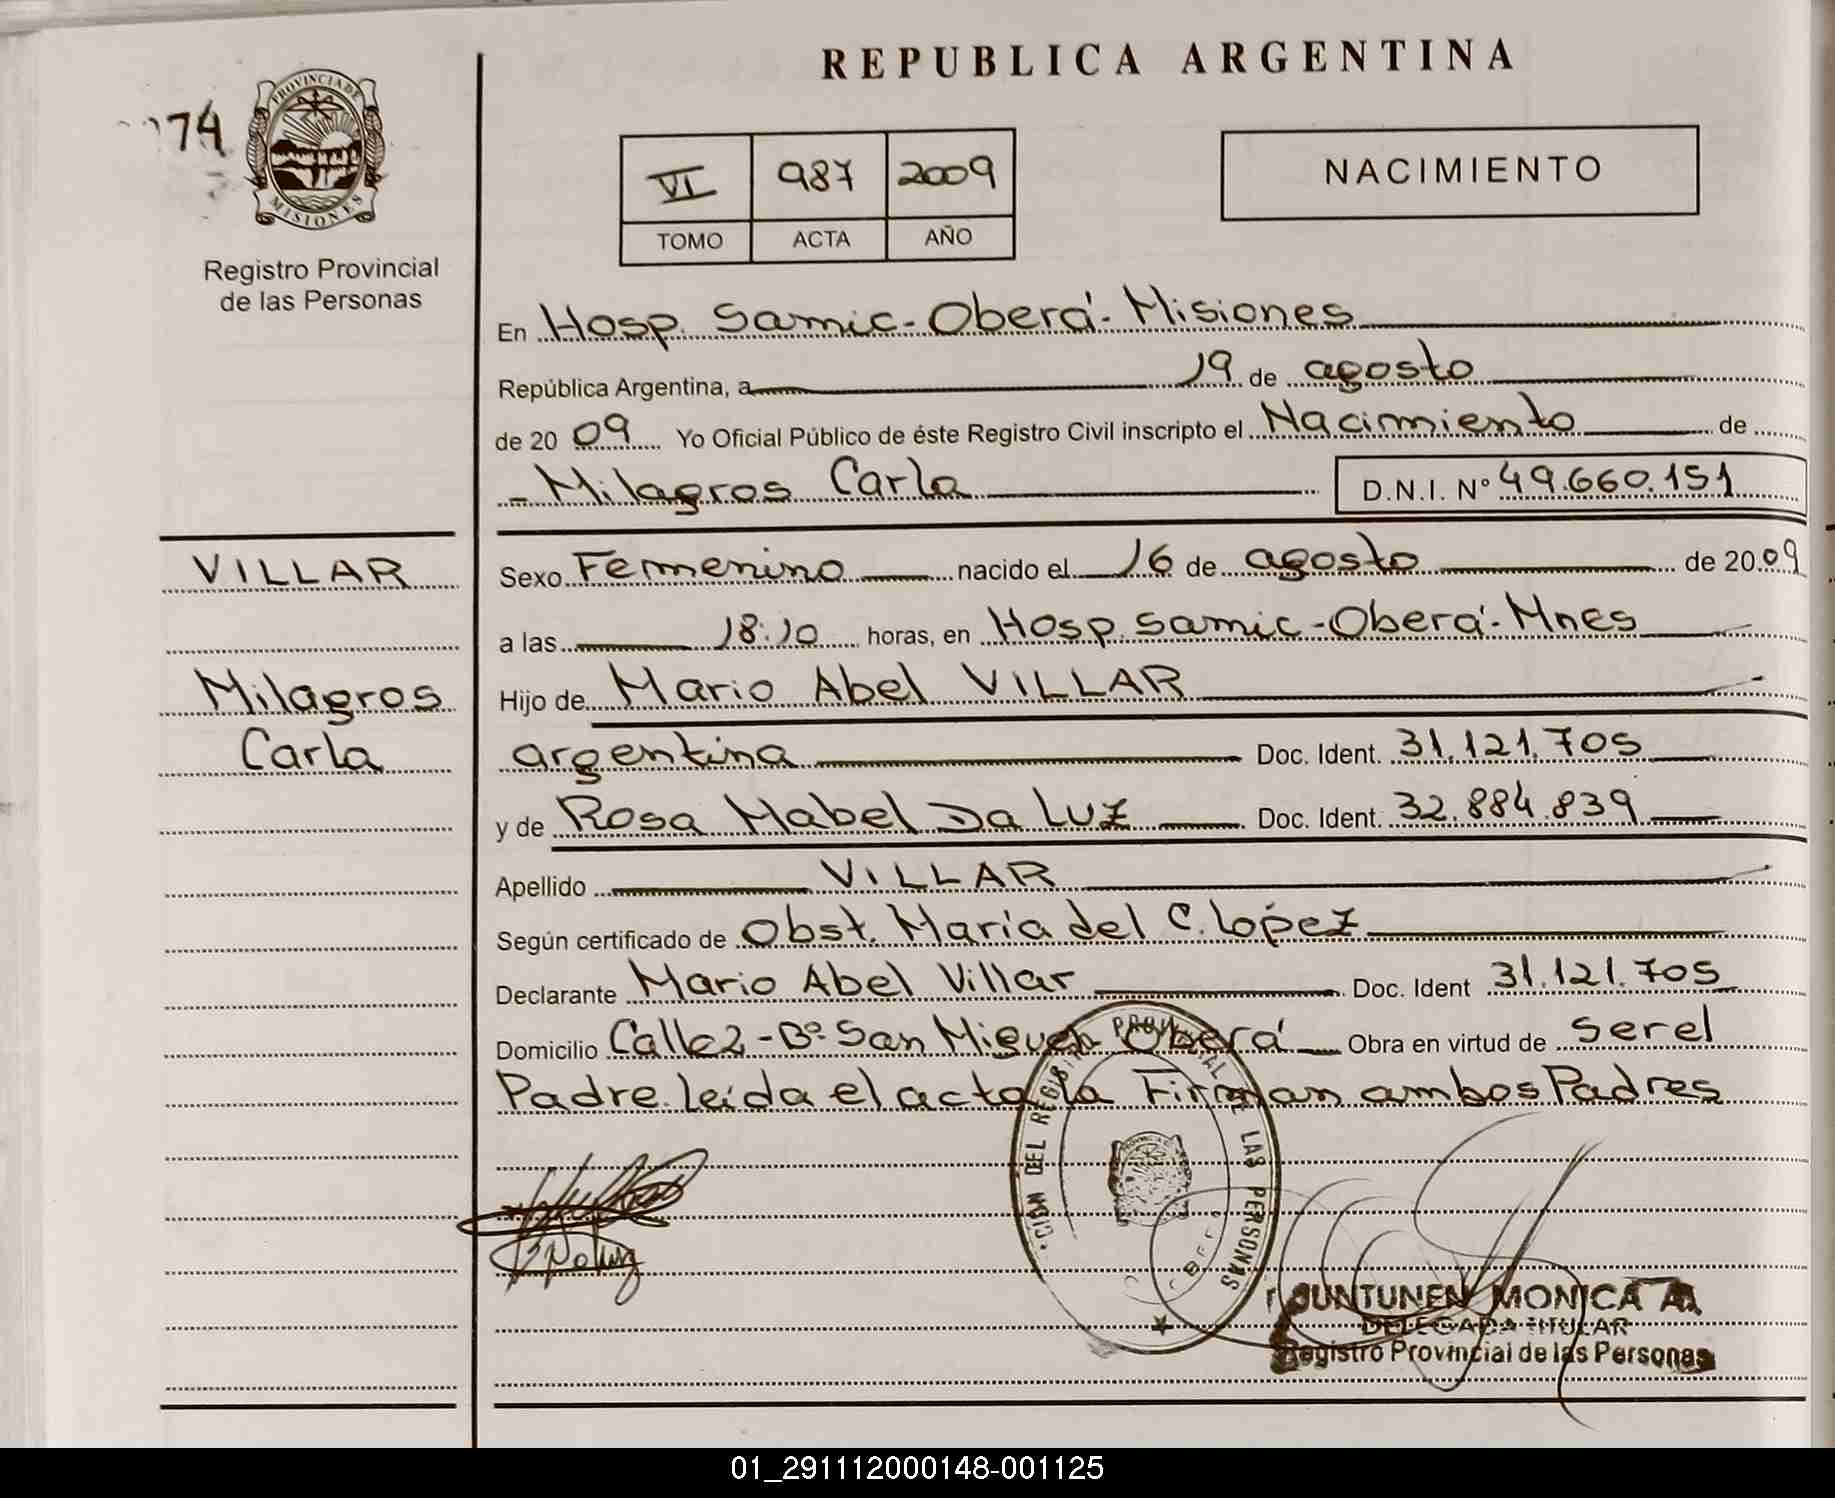 REPUBLICA ARGENTINA
74
PROVINCIA DE
MISIONES
Registro Provincial
de las Personas
VI 987 2009
TOMO ACTA AÑO
NACIMIENTO
En Hosp. Samic-Oberá-Misiones
República Argentina, a 19 de agosto
de 20 09 Yo Oficial Público de éste Registro Civil inscripto el Nacimiento de
- Milagros Carla D.N.I. Nº 49.660.151
VILLAR
Milagros
Carla
Sexo Femenino nacido el 16 de agosto de 20 09
a las 18:10 horas, en Hosp. Samic-Oberá-Mnes
Hijo de Mario Abel VILLAR
argentina Doc. Ident. 31.121.705
y de Rosa Mabel Da Luz Doc. Ident. 32.884.839
Apellido VILLAR
Según certificado de Obst. María del C. López
Declarante Mario Abel Villar Doc. Ident 31.121.705
Domicilio Calle 2-Bº San Miguel Oberá Obra en virtud de ser el
Padre. leída el acta la Firman ambos Padres
DEL REGISTRO PROVINCIAL DE LAS PERSONAS
MONICA A.
DELEGADA TITULAR
Registro Provincial de las Personas
01_291112000148-001125